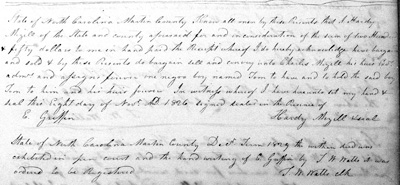 State of North Carolina Martin County Know all men by these Presents that I Hardy
Mizill of the State and County aforesaid for and in consideration of the sum of two Hund
& fifty dollars to me in hand paid the Receipt whereof I do hereby acknowledge have bargan
and sold & by these Presents do bargan sell and convey unto Charles Mizill his heirs
admrs and assigns forever one negro boy named Tom to him and to hold the said boy
Tom to him and his heirs forever In witness whereof I have hereunto set my hand &
seal this Eight day of Novr 1826 signed sealed in the Presence of
E Griffin Hardy Mizill seal
State of North Carolina Martin County June 1829 the within deed was
exhibited in open court and the hand writing of E Griffin by J W Watts it was
ordered to be Registered J W Watts clk